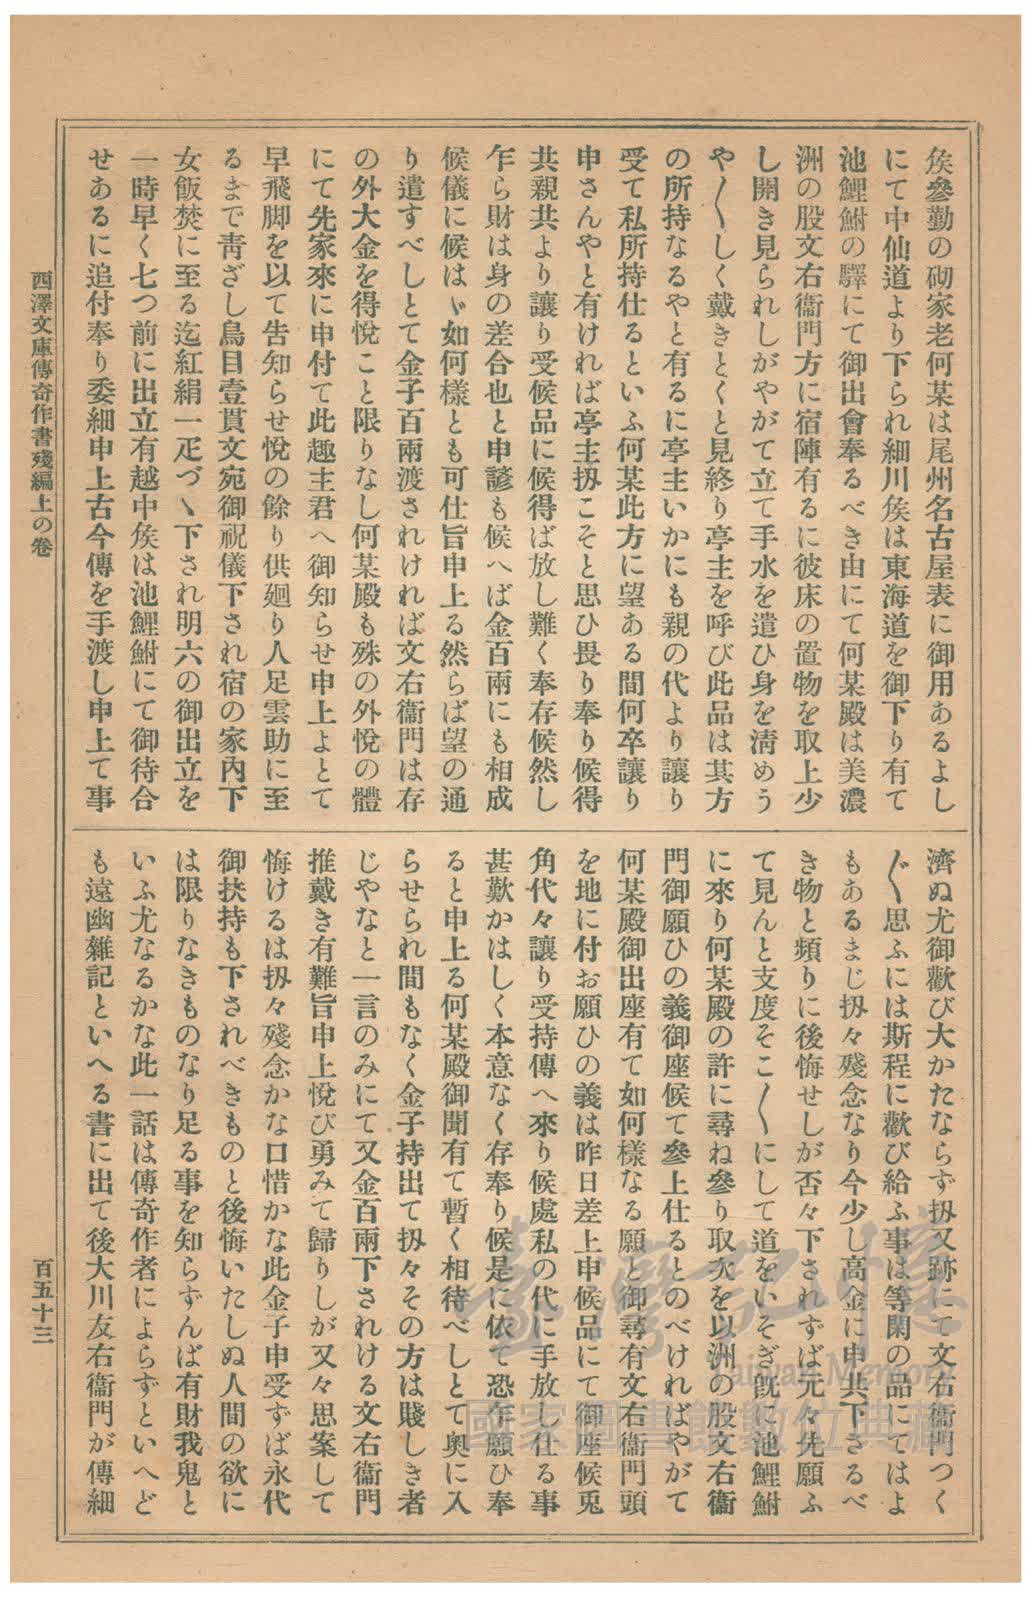 矦參勤の砌家老何某は尾州名古屋表に御用あるよし
にて中仙道より下られ細川矦は東海道を御下り有て
池鯉鮒の驛にて御出會奉るべき由にて何某殿は美濃
洲の股文右衞門方に宿陣有るに彼床の置物を取上少
し開き見られしがやがて立て手水を遣ひ身を淸めう
や〳〵しく戴きとくと見終り亭主を呼び此品は其方
の所持なるやと有るに亭主いかにも親の代より讓り
受て私所持仕るといふ何某此方に望ある間何卒讓り
申さんやと有ければ亭主扨こそと思ひ畏り奉り候得
共親共より讓り受候品に候得ば放し難く奉存候然し
乍ら財は身の差合也と申諺も候へば金百兩にも相成
候儀に候はゞ如何樣とも可仕旨申上る然らば望の通
り遣すべしとて金子百兩渡されければ文右衞門は存
の外大金を得悅こと限りなし何某殿も殊の外悅の體
にて先家來に申付て此趣主君へ御知らせ申上よとて
早飛脚を以て吿知らせ悅の餘り供廻り人足雲助に至
るまで靑ざし鳥目壹貫文宛御祝儀下され宿の家內下
女飯焚に至る迄紅絹一疋づゝ下され明六の御出立を
一時早く七つ前に出立有越中矦は池鯉鮒にて御待合
せあるに追付奉り委細申上古今傳を手渡し申上て事
濟ぬ尤御歡び大かたならず扨又跡にて文右衞門つく
〴〵思ふには斯程に歡び給ふ事は等閑の品にてはよ
もあるまじ扨々殘念なり今少し高金に申共下さるべ
き物と頻りに後悔せしが否々下されずば元々先願ふ
て見んと支度そこ〳〵にして道をいそぎ旣に池鯉鮒
に來り何某殿の許に尋ね參り取次を以洲の股文右衞
門御願ひの義御座候て參上仕るとのべければやがて
何某殿御出座有て如何樣なる願と御尋有文右衞門頭
を地に付お願ひの義は昨日差上申候品にて御座候兎
角代々讓り受持傳へ來り候處私の代に手放し仕る事
甚歎かはしく本意なく存奉り候是に依て恐乍願ひ奉
ると申上る何某殿御聞有て暫く相待べしとて奧に入
らせられ間もなく金子持出て扨々その方は賤しき者
じやなと一言のみにて又金百兩下されける文右衞門
推戴き有難旨申上悅び勇みて歸りしが又々思案して
悔けるは扨々殘念かな口惜かな此金子申受ずば永代
御扶持も下されべきものと後悔いたしぬ人間の欲に
は限りなきものなり足る事を知らずんば有財我鬼と
いふ尤なるかな此一話は傳奇作者によらずといへど
も遠幽雜記といへる書に出て後大川友右衞門が傳細
西澤文庫傳奇作書殘編上の卷
百五十三
臺灣記憶
Taiwan Memory
國家圖書館數位典藏